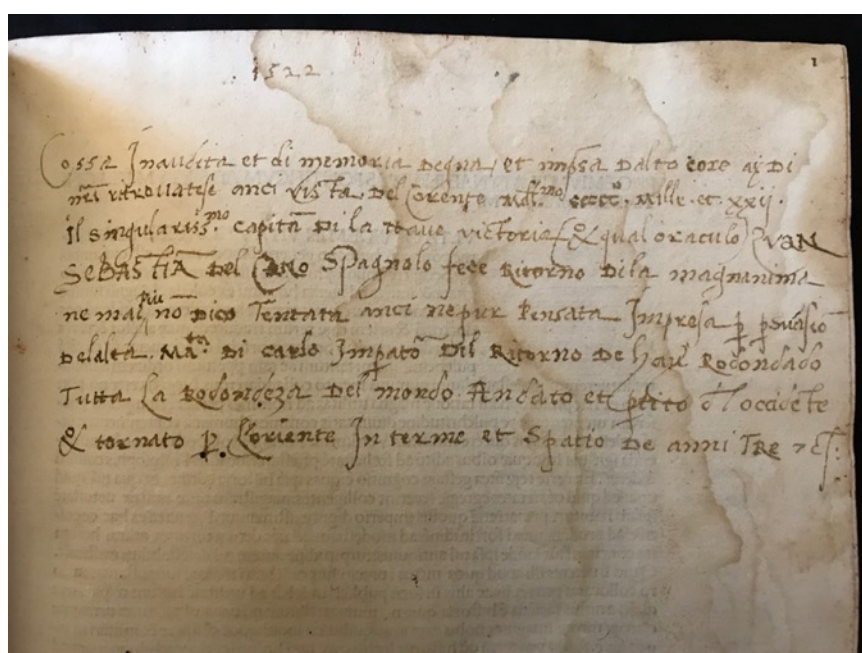 1522
1
Cossa Inaudita et di memoria degna, et impsa dalto core ay di
nri ritrovatese anci vista. Del Corente Mill.mo cccc. Mille. et. xxij.
Il singulariss.mo capitā di la nave victoria (& qual oraculo) Zvan
SEBASTIĀ del Cano Spagnolo fece Ritorno di la magnanima
ne mai piu nō dico Tentata anci ne pur Pensata Impresa p psuasiō
Delalta. Ma.ta Di Carlo Impatō Dil Ritorno De haver Rodondado
Tutta La Rodondeza Del mondo Andato et ptito d loccidēte
& tornato p. Loriente In terme et Spatio De anni TRe